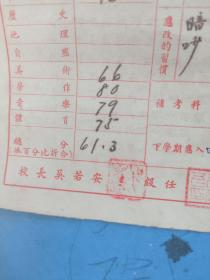 歷史
地理
自然
美術 66
勞作 80
音樂 79
體育 75
總分
(百分比折合) 61.3
應改的習慣
補考科
下學期應入
校長吳若安
級任